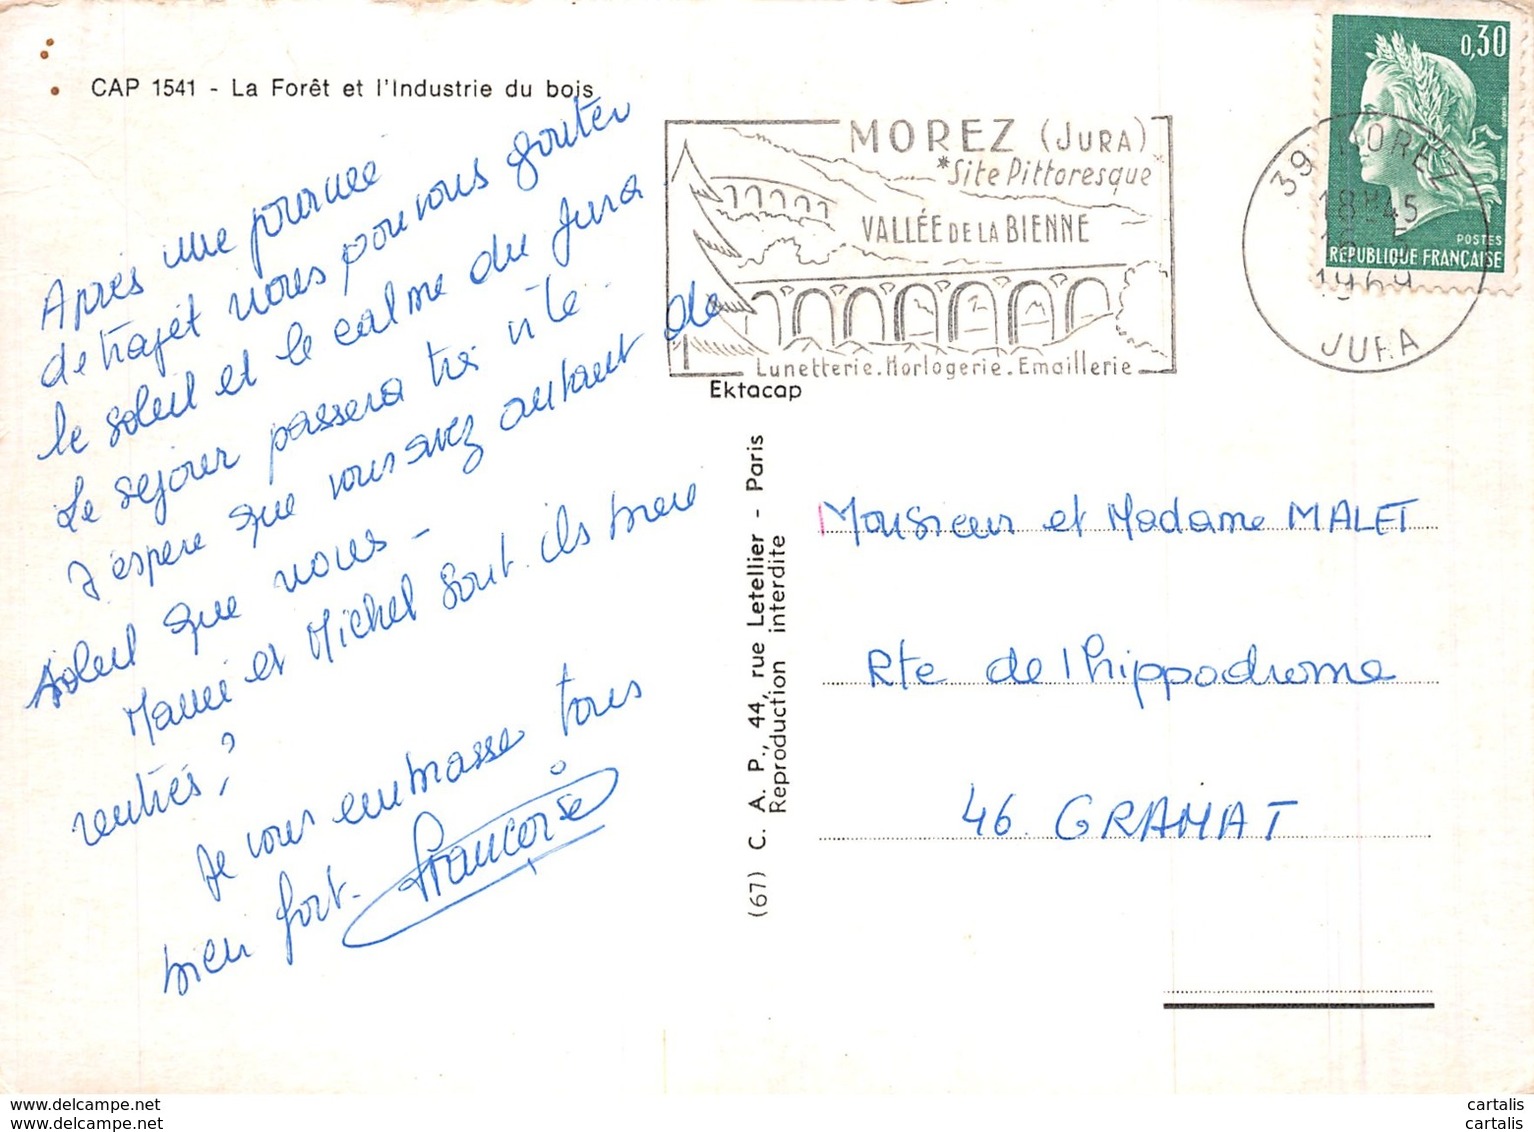 CAP 1541 - La Forêt et l'Industrie du bois
Après une journée
de trajet nous pouvons gouter
le soleil et le calme du Jura
Le sejour passera très vite.
J'espere que vous avez autant de
soleil que nous -
Mamie et Michel sont-ils bien
rentrés?
Je vous embrasse tous
bien fort.
Françoise
MOREZ (JURA)
*Site Pittoresque*
VALLÉE DE LA BIENNE
Lunetterie.Horlogerie.Emaillerie
Ektacap
0,30
POSTES
RÉPUBLIQUE FRANÇAISE
39 MOREZ
18H45
1969
JURA
(67) C. A. P., 44, rue Letellier - Paris
Reproduction interdite
Monsieur et Madame MALET
Rte de l'hippodrome
46. GRAMAT
delcampe.net
delcampe.net
cartalis
cartalis